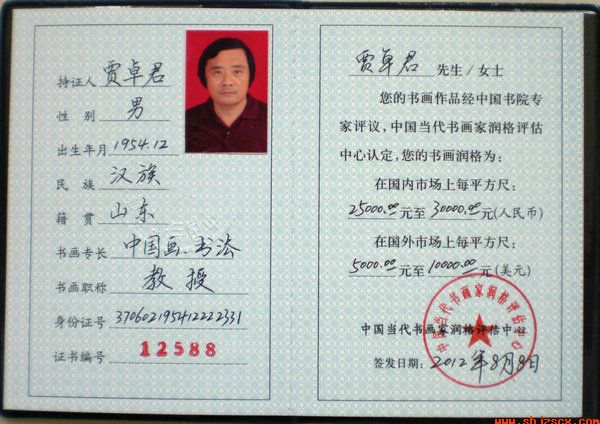 持证人 贾卓君
性别 男
出生年月 1954.12
民族 汉族
籍贯 山东
书画专长 中国画、书法
书画职称 教授
身份证号 370602195412222331
证书编号 12588
贾卓君 先生/女士
您的书画作品经中国书院专
家评议,中国当代书画家润格评估
中心认定,您的书画润格为:
在国内市场上每平方尺:
25000.00元至30000.00元(人民币)
在国外市场上每平方尺:
5000.00元至10000.00元(美元)
中国当代书画家润格评估中心
中国当代书画家润格评估中心
签发日期:2012年8月8日
www.sbjzscx.com